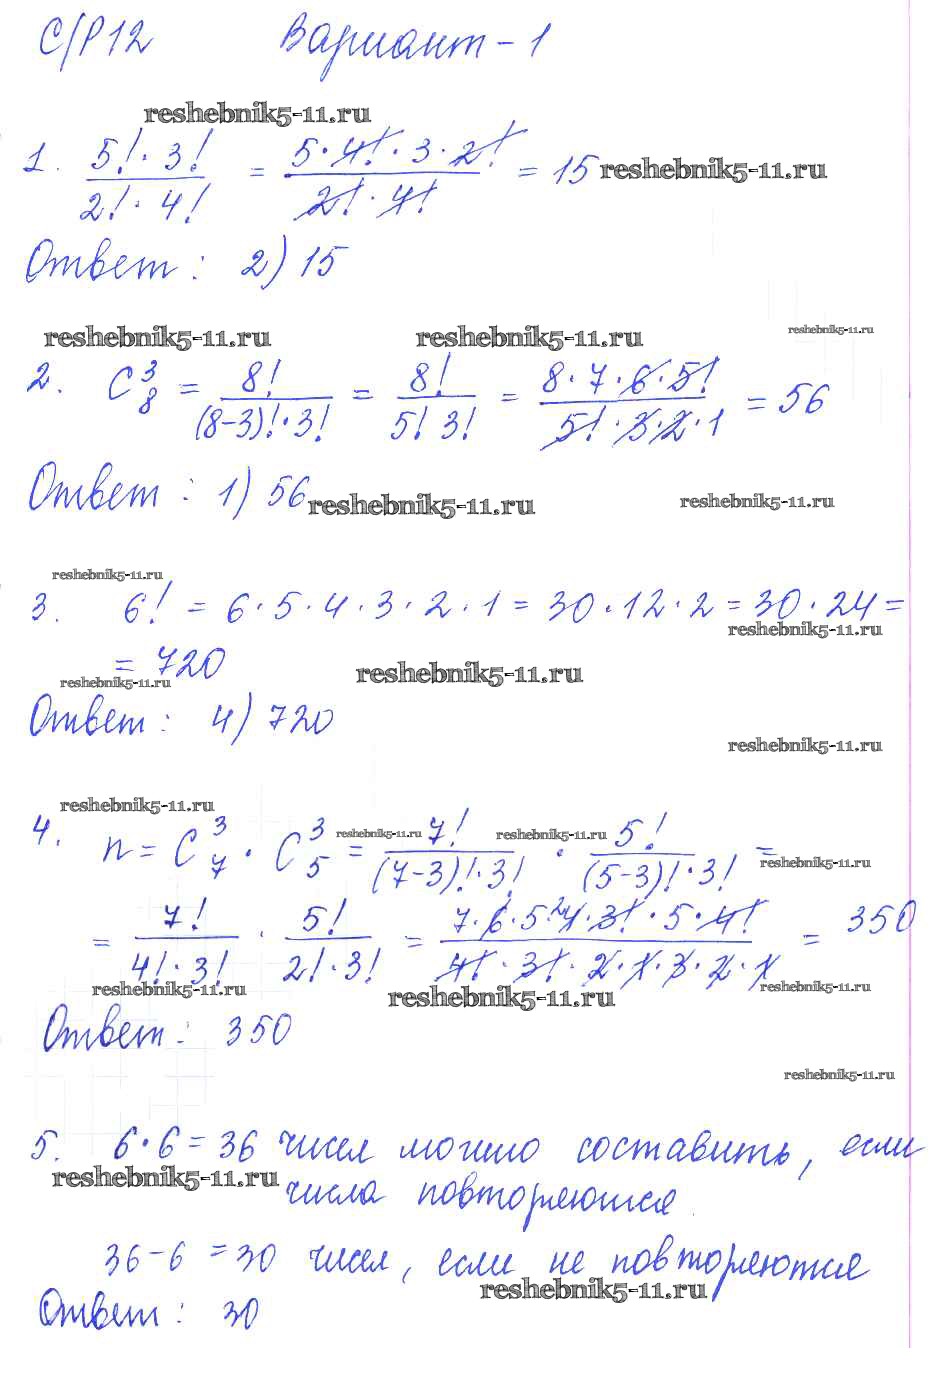 С/Р 12 Вариант - 1
reshebnik5-11.ru
1. 5! · 3! / 2! · 4! = 5 · 4! · 3 · 2! / 2! · 4! = 15 reshebnik5-11.ru
Ответ : 2) 15
reshebnik5-11.ru reshebnik5-11.ru reshebnik5-11.ru
2. C₈³ = 8! / (8-3)! · 3! = 8! / 5! 3! = 8 · 7 · 6 · 5! / 5! · 3 · 2 · 1 = 56
Ответ : 1) 56 reshebnik5-11.ru reshebnik5-11.ru
reshebnik5-11.ru
3. 6! = 6 · 5 · 4 · 3 · 2 · 1 = 30 · 12 · 2 = 30 · 24 =
reshebnik5-11.ru
= 720 reshebnik5-11.ru
reshebnik5-11.ru
Ответ : 4) 720
reshebnik5-11.ru
reshebnik5-11.ru
4. n = C₇³ · C₅³ = 7! / (7-3)! · 3! · 5! / (5-3)! · 3! =
reshebnik5-11.ru reshebnik5-11.ru reshebnik5-11.ru
= 7! / 4! · 3! · 5! / 2! · 3! = 7 · 6 · 5 · ²4 · 3! · 5 · 4! / 4! · 3! · 2 · 1 · 3 · 2 · 1 = 350
reshebnik5-11.ru reshebnik5-11.ru reshebnik5-11.ru
Ответ : 350
reshebnik5-11.ru
5. 6 · 6 = 36 чисел можно составить, если
reshebnik5-11.ru числа повторяются
36 - 6 = 30 чисел, если не повторяются
reshebnik5-11.ru
Ответ : 30